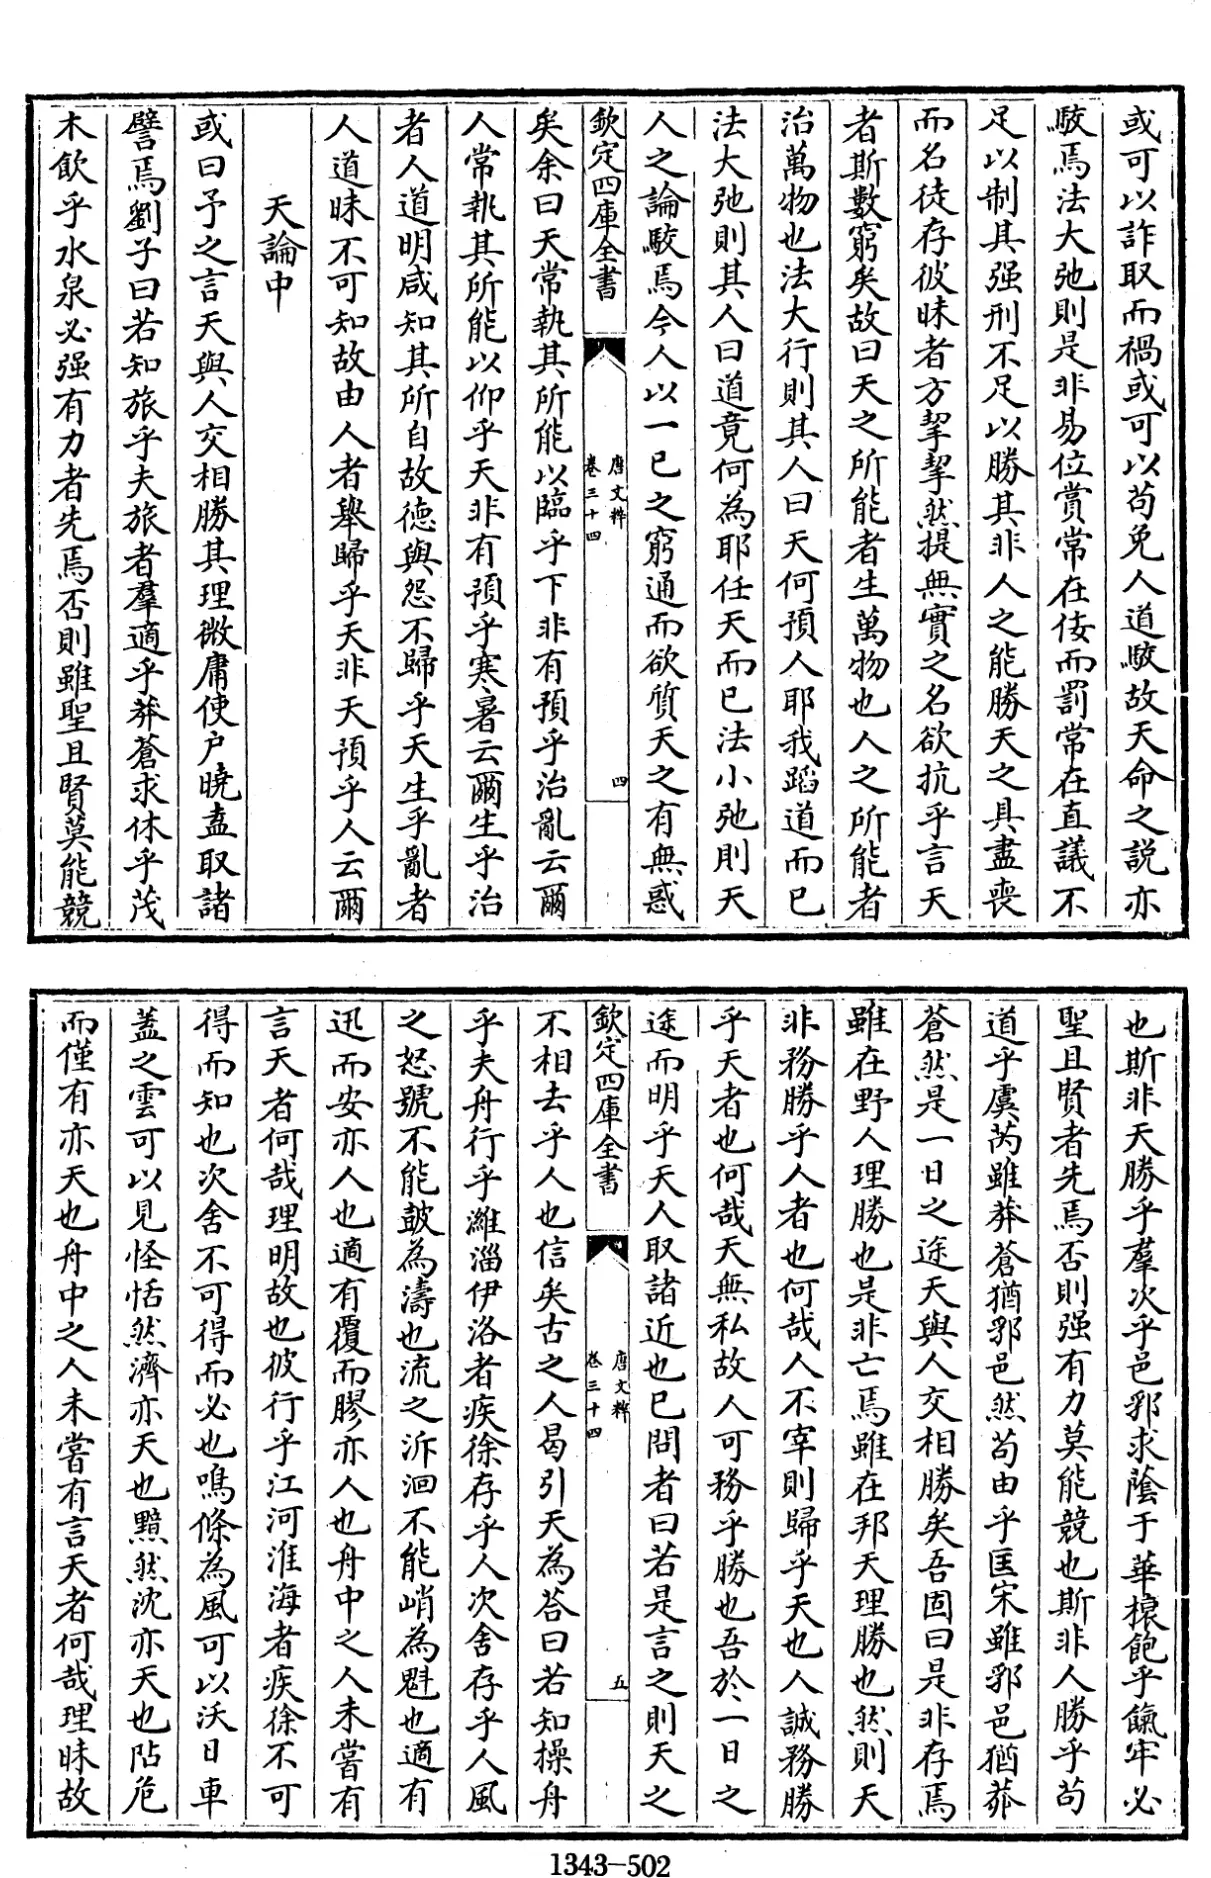 或可以詐取而禍或可以苟免人道駮故天命之説亦
駮焉法大弛則是非易位賞常在佞而罰常在直議不
足以制其强刑不足以勝其非人之能勝天之具盡喪
而名徒存彼昧者方挈挈然提無實之名欲抗乎言天
者斯數窮矣故曰天之所能者生萬物也人之所能者
治萬物也法大行則其人曰天何預人耶我蹈道而已
法大弛則其人曰道竟何為耶任天而已法小弛則天
人之論駮焉今人以一已之窮通而欲質天之有無惑
欽定四庫全書
唐文粹
卷三十四
四
矣余曰天常執其所能以臨乎下非有預乎治亂云爾
人常執其所能以仰乎天非有預乎寒暑云爾生乎治
者人道明咸知其所自故德與怨不歸乎天生乎亂者
人道昧不可知故由人者舉歸乎天非天預乎人云爾
天論中
或曰予之言天與人交相勝其理微庸使户曉盍取諸
譬焉劉子曰若知旅乎夫旅者羣適乎莽蒼求休乎茂
木飲乎水泉必强有力者先焉否則雖聖且賢莫能競
也斯非天勝乎羣次乎邑郛求蔭于華榱飽乎餼牢必
聖且賢者先焉否則强有力莫能競也斯非人勝乎苟
道乎虞芮雖莽蒼猶郛邑然苟由乎匡宋雖郛邑猶莽
蒼然是一日之途天與人交相勝矣吾固曰是非存焉
雖在野人理勝也是非亡焉雖在邦天理勝也然則天
非務勝乎人者也何哉人不宰則歸乎天也人誠務勝
乎天者也何哉天無私故人可務乎勝也吾於一日之
途而明乎天人取諸近也已問者曰若是言之則天之
欽定四庫全書
唐文粹
卷三十四
五
不相去乎人也信矣古之人曷引天為答曰若知操舟
乎夫舟行乎濰淄伊洛者疾徐存乎人次舍存乎人風
之怒號不能鼓為濤也流之泝洄不能峭為魁也適有
迅而安亦人也適有覆而膠亦人也舟中之人未嘗有
言天者何哉理明故也彼行乎江河淮海者疾徐不可
得而知也次舍不可得而必也鳴條為風可以沃日車
蓋之雲可以見怪恬然濟亦天也黯然沈亦天也阽危
而僅有亦天也舟中之人未嘗有言天者何哉理昧故
1343-502